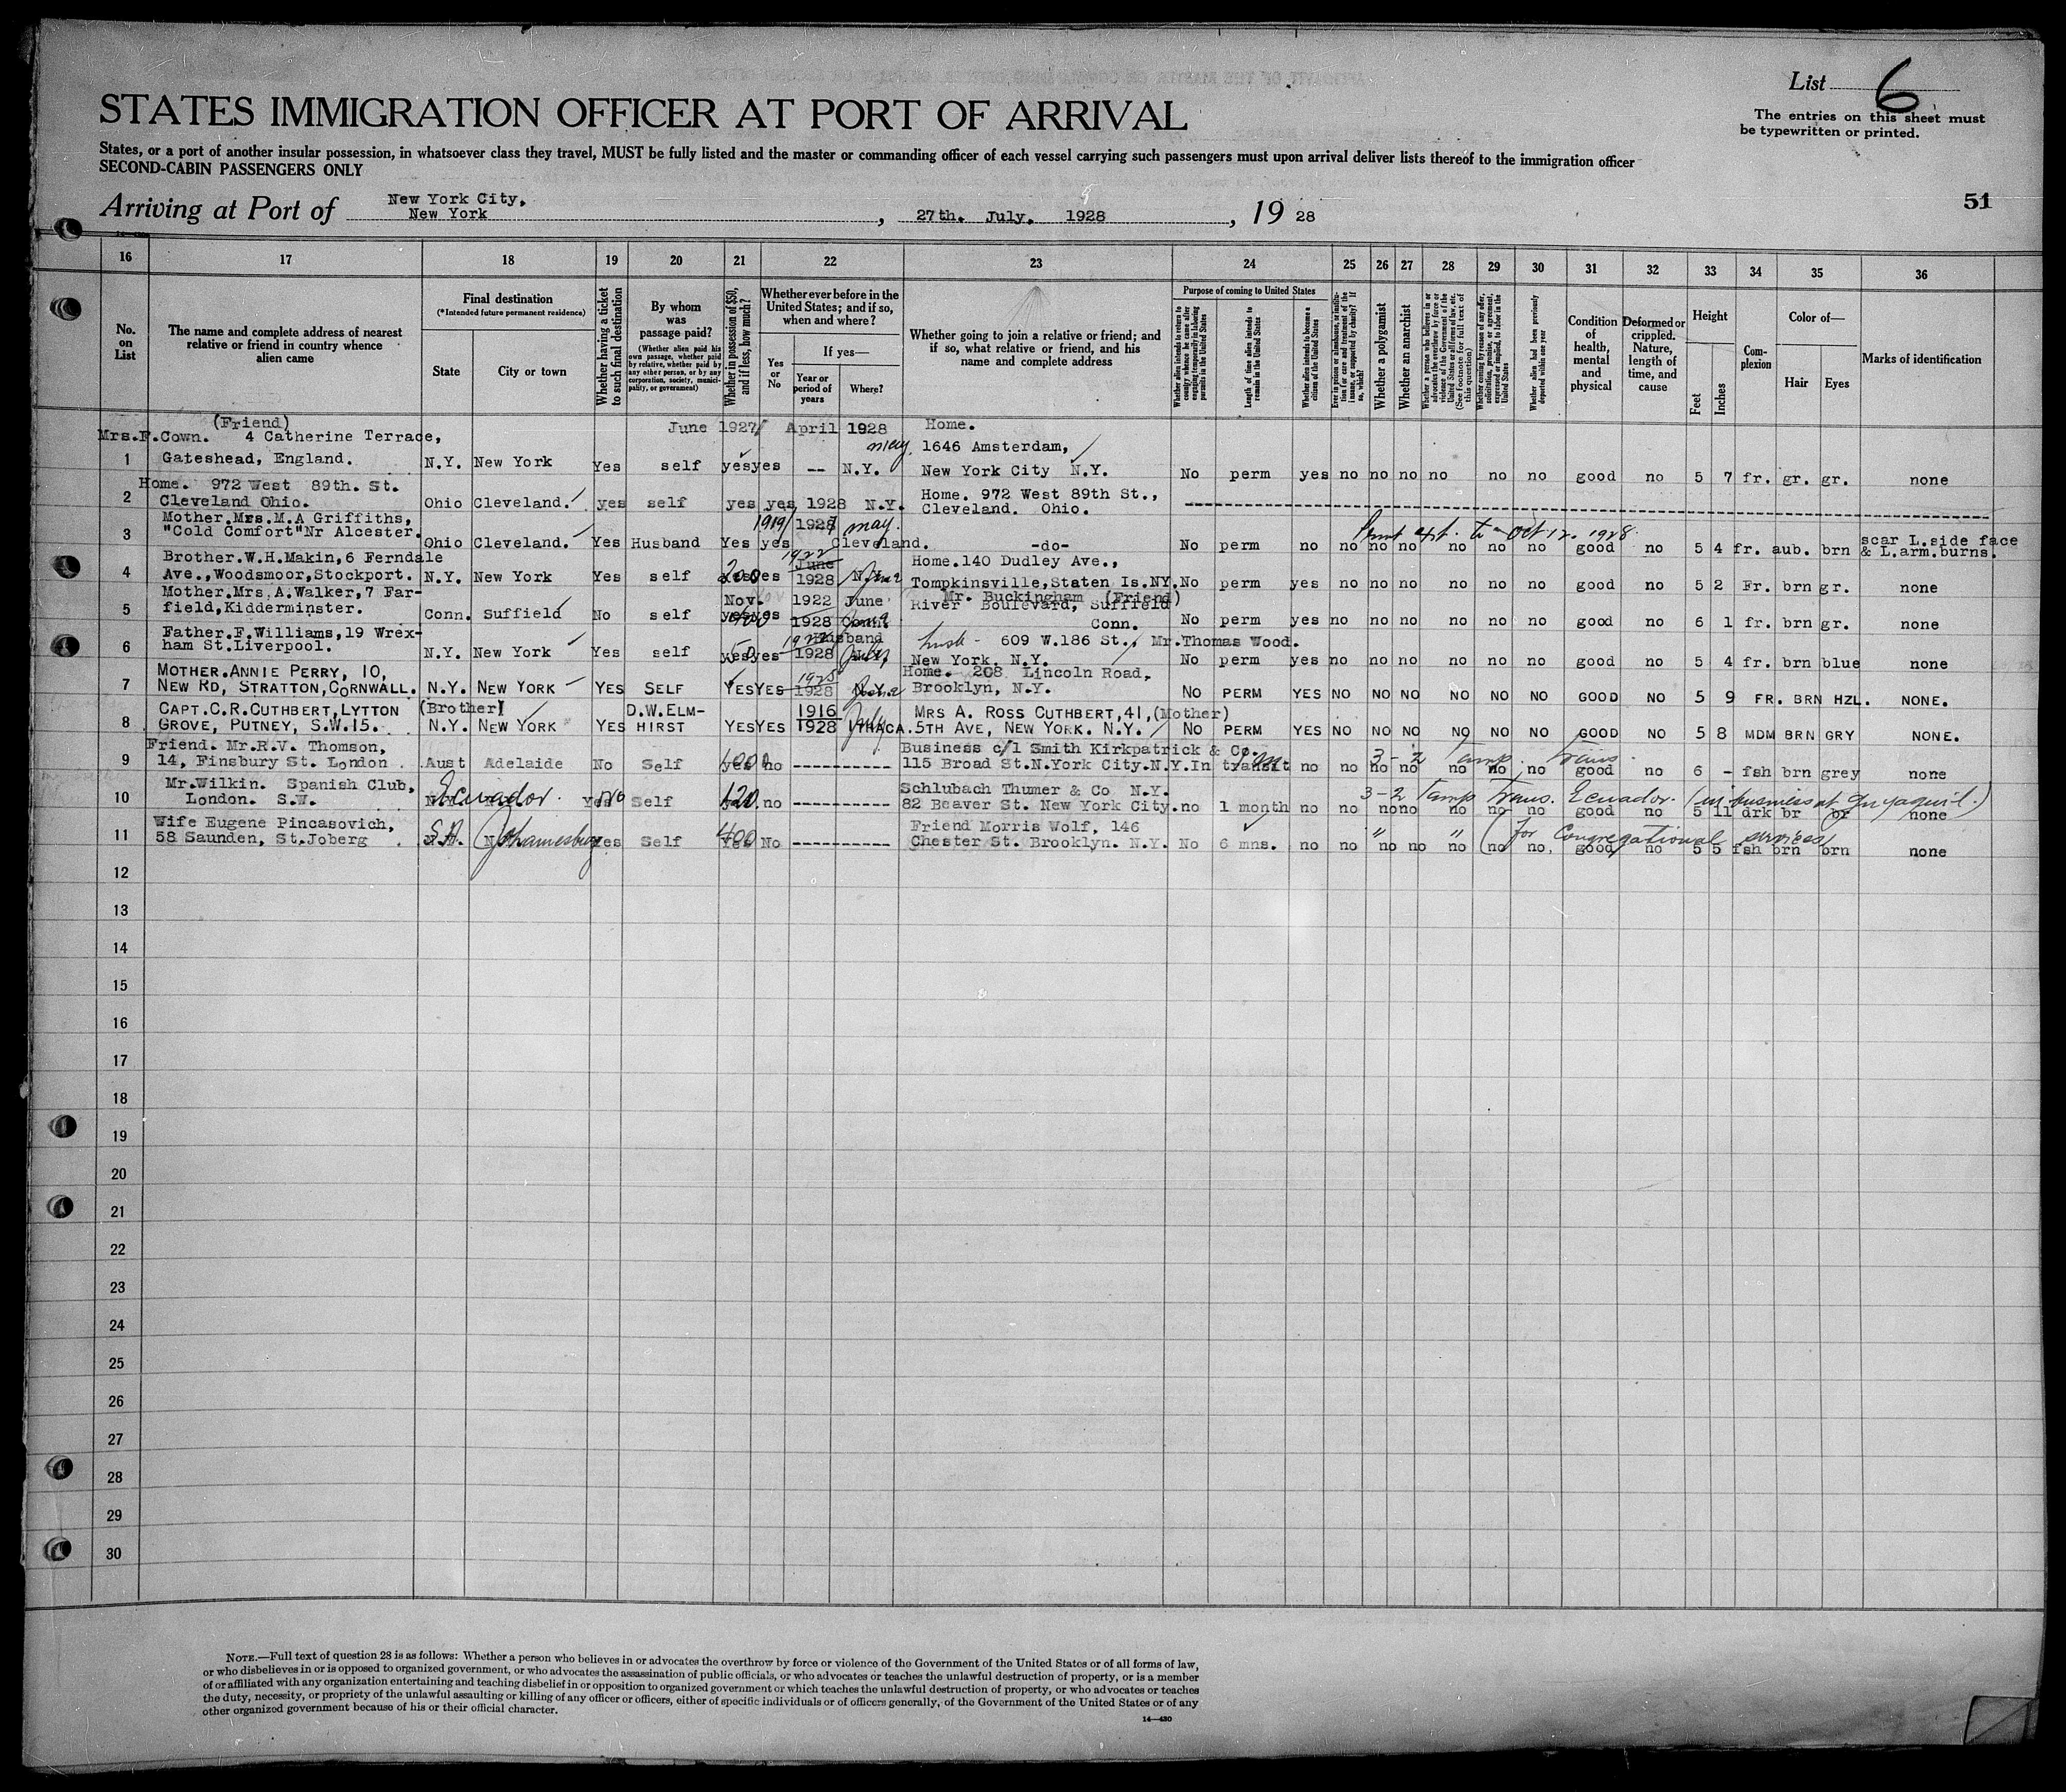 List 6
The entries on this sheet must
be typewritten or printed.
STATES IMMIGRATION OFFICER AT PORT OF ARRIVAL
States, or a port of another insular possession, in whatsoever class they travel, MUST be fully listed and the master or commanding officer of each vessel carrying such passengers must upon arrival deliver lists thereof to the immigration officer
SECOND-CABIN PASSENGERS ONLY
51
Arriving at Port of New York City, New York, 27th. July. 1928, 19 28
16 17 18 19 20 21 22 23 24 25 26 27 28 29 30 31 32 33 34 35 36
No. on List
The name and complete address of nearest relative or friend in country whence alien came
Final destination
(*Intended future permanent residence)
State
City or town
Whether having a ticket to such final destination
By whom was passage paid?
(Whether alien paid his own passage, whether paid by relative, whether paid by any other person, or by any corporation, society, municipality, or government)
Whether in possession of $50, and if less, how much?
Whether ever before in the United States; and if so, when and where?
Yes or No
If yes—
Year or period of years
Where?
Whether going to join a relative or friend; and if so, what relative or friend, and his name and complete address
Purpose of coming to United States
Whether alien intends to return to country whence he came after engaging temporarily in laboring pursuits in the United States
Length of time alien intends to remain in the United States
Whether alien intends to become a citizen of the United States
Ever in prison or almshouse, or institution for care and treatment of the insane, or supported by charity? If so, which?
Whether a polygamist
Whether an anarchist
Whether a person who believes in or advocates the overthrow by force or violence of the Government of the United States or all forms of law, etc. (See footnote for full text of this question)
Whether coming by reason of any offer, solicitation, promise, or agreement, expressed or implied, to labor in the United States
Whether alien had been previously deported within one year
Condition of health, mental and physical
Deformed or crippled. Nature, length of time, and cause
Height
Feet
Inches
Complexion
Color of—
Hair
Eyes
Marks of identification
(Friend)
Mrs.F.Cown. 4 Catherine Terrace, June 1927/ April 1928 Home.
may. 1646 Amsterdam,
1 Gateshead, England. N.Y. New York Yes self yes yes -- N.Y. New York City N.Y. No perm yes no no no no no no good no 5 7 fr. gr. gr. none
Home. 972 West 89th. St.
2 Cleveland Ohio. Ohio Cleveland. yes self yes yes 1928 N.Y. Home. 972 West 89th St., Cleveland. Ohio.
Mother.Mrs.M.A Griffiths, 1919/ 1928 may.
3 "Cold Comfort"Nr Alcester. Ohio Cleveland. Yes Husband Yes yes Cleveland. -do- No perm no no no no no no no good no 5 4 fr. aub. brn scar L.side face & L.arm.burns.
to Oct 12. 1928.
Brother.W.H.Makin,6 Ferndale 1922 June Home.140 Dudley Ave.,
4 Ave.,Woodsmoor,Stockport. N.Y. New York Yes self 200 yes 1928 June Tompkinsville,Staten Is.NY. No perm yes no no no no no no good no 5 2 Fr. brn gr. none
Mother.Mrs.A.Walker,7 Far- Nov. 1922 June Mr. Buckingham (Friend)
River Boulevard, Suffield
5 field,Kidderminster. Conn. Suffield No self yes 1928 Conn. Conn. No perm yes no no no no no no good no 6 1 fr. brn gr. none
Father.F.Williams,19 Wrex- Husband 609 W.186 St., Mr.Thomas Wood.
6 ham St.Liverpool. N.Y. New York Yes self 50 yes 1928 July New York. N.Y. No perm yes no no no no no no good no 5 4 fr. brn blue none
MOTHER.ANNIE PERRY, 10, 1925 Home. 208 Lincoln Road,
7 NEW RD, STRATTON,CORNWALL. N.Y. NEW YORK YES SELF YES YES 1928 N.Y. Brooklyn, N.Y. NO PERM YES NO NO NO NO NO NO GOOD NO 5 9 FR. BRN HZL. NONE.
CAPT.C.R.CUTHBERT,LYTTON (Brother) D.W.ELM- 1916 MRS A. ROSS CUTHBERT,41,(Mother)
8 GROVE, PUTNEY, S.W.15. N.Y. NEW YORK YES HIRST YES YES 1928 ITHACA. 5TH AVE, NEW YORK. N.Y. NO PERM YES NO NO NO NO NO NO GOOD NO 5 8 MDM BRN GRY NONE.
Friend. Mr.R.V. Thomson, Business c/1 Smith Kirkpatrick & Co. 3-2 Temp. Trans.
9 14, Finsbury St. London Aust Adelaide No Self no ---------- 115 Broad St.N.York City.N.Y. In transit no no no no no no no good no 6 - fsh brn grey none
Mr.Wilkin. Spanish Club, Ecuador. Schlubach Thumer & Co N.Y. 3-2 Temp Trans. Ecuador. (in business at Guyaquil.)
10 London. S.W. No Self 120. no ---------- 82 Beaver St. New York City. no 1 month no no no no no no no good no 5 11 drk br br none
Wife Eugene Pincasovich, Friend Morris Wolf, 146 " " (for Congregational services)
11 58 Saunden, St.Joberg S.A. Johannesburg Yes Self 400 No ---------- Chester St. Brooklyn. N.Y. No 6 mns. no no no no no no no. good no 5 5 fsh brn brn none
12
13
14
15
16
17
18
19
20
21
22
23
24
25
26
27
28
29
30
NOTE.—Full text of question 28 is as follows: Whether a person who believes in or advocates the overthrow by force or violence of the Government of the United States or of all forms of law,
or who disbelieves in or is opposed to organized government, or who advocates the assassination of public officials, or who advocates or teaches the unlawful destruction of property, or is a member
of or affiliated with any organization entertaining and teaching disbelief in or opposition to organized government or which teaches the unlawful destruction of property, or who advocates or teaches
the duty, necessity, or propriety of the unlawful assaulting or killing of any officer or officers, either of specific individuals or of officers generally, of the Government of the United States or of any
other organized government because of his or their official character.
14—430